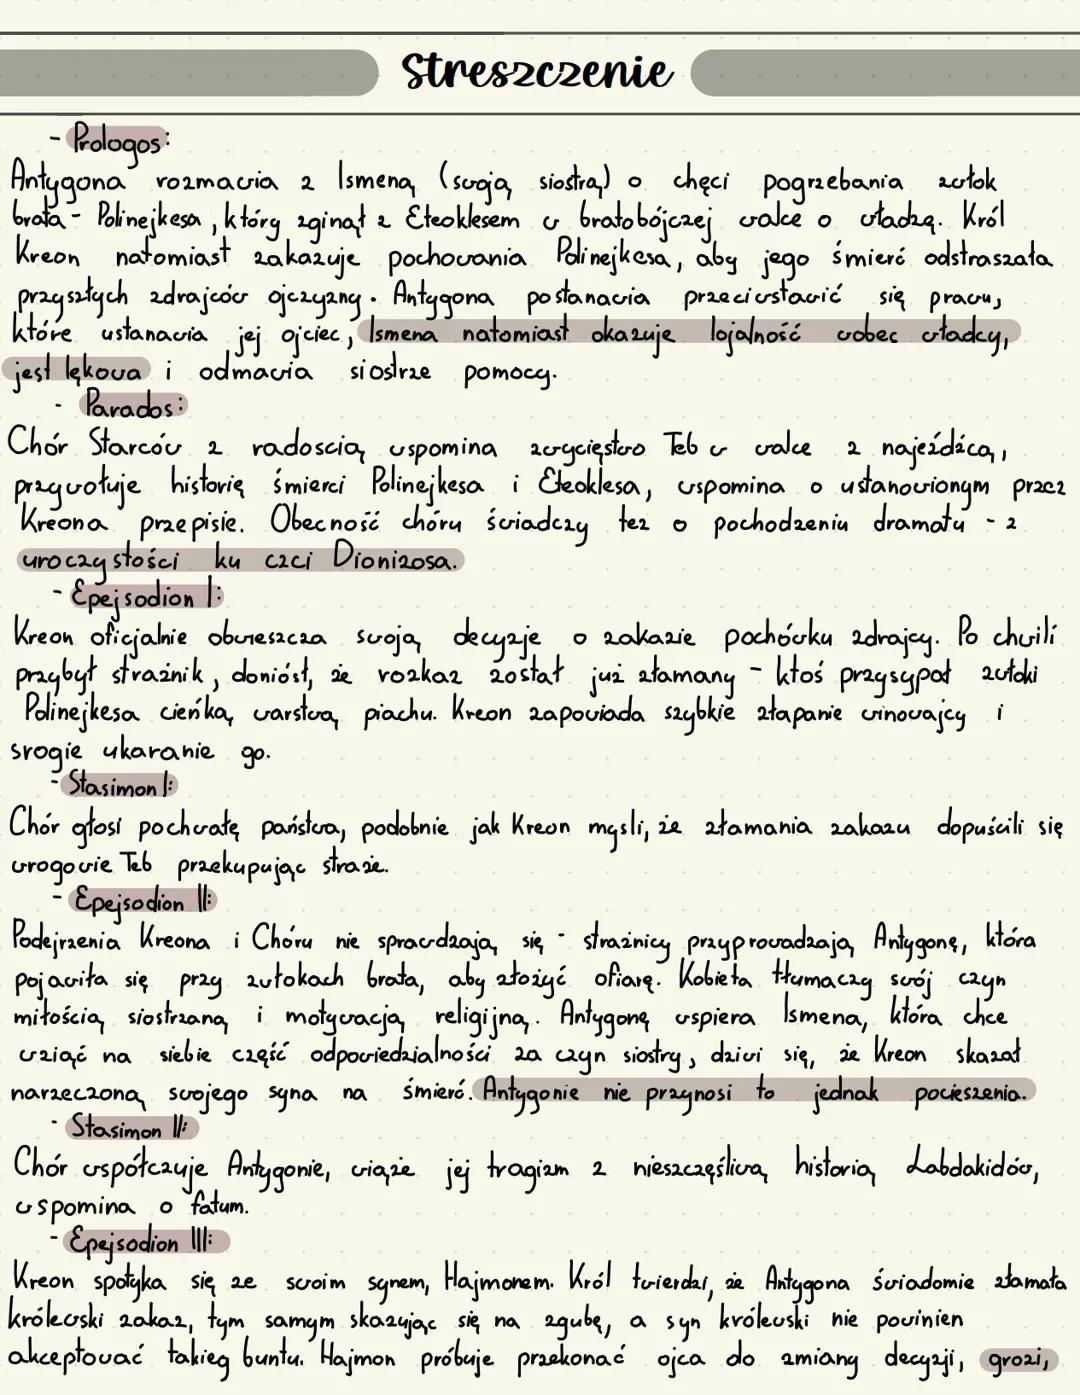 Streszczenie
- Prologos:
Antygona rozmawia z Ismeną (swoją siostrą) o chęci pogrzebania zwłok
brata - Polinejkesa, który zginął z Eteoklesem w bratobójczej walce o władzę. Król
Kreon natomiast zakazuje pochowania Polinejkesa, aby jego śmierć odstraszała
przyszłych zdrajców ojczyzny. Antygona postanawia przeciwstawić się prawu,
które ustanawia jej ojciec, Ismena natomiast okazuje lojalność wobec władcy,
jest lękowa i odmawia siostrze pomocy.
- Parados:
Chór Starców z radoscią wspomina zwycięstwo Teb w walce z najeźdźcą,
przywołuje historię śmierci Polinejkesa i Eteoklesa, wspomina o ustanowionym przez
Kreona przepisie. Obecność chóru świadczy też o pochodzeniu dramatu - z
uroczystości ku czci Dionizosa.
- Epejsodion I:
Kreon oficjalnie obwieszcza swoją decyzje o zakazie pochówku zdrajcy. Po chwili
przybył strażnik, doniósł, że rozkaz został już złamany - ktoś przysypał zwłoki
Polinejkesa cieńką warstwą piachu. Kreon zapowiada szybkie złapanie winowajcy i
srogie ukaranie go.
- Stasimon I:
Chór głosi pochwałę państwa, podobnie jak Kreon mysli, że złamania zakazu dopuścili się
wrogowie Teb przekupując straże.
- Epejsodion II:
Podejrzenia Kreona i Chóru nie sprawdzają się - strażnicy przyprowadzają Antygonę, która
pojawiła się przy zwłokach brata, aby złożyć ofiarę. Kobieta tłumaczy swój czyn
miłością siostrzaną i motywacją religijną. Antygonę wspiera Ismena, która chce
wziąć na siebie część odpowiedzialności za czyn siostry, dziwi się, że Kreon skazał
narzeczoną swojego syna na śmierć. Antygonie nie przynosi to jednak pocieszenia.
- Stasimon II:
Chór współczuje Antygonie, wiąże jej tragizm z nieszczęśliwą historią Labdakidów,
wspomina o fatum.
- Epejsodion III:
Kreon spotyka się ze swoim synem, Hajmonem. Król twierdzi, że Antygona świadomie złamała
królewski zakaz, tym samym skazując się na zgubę, a syn królewski nie powinien
akceptować takieg buntu. Hajmon próbuje przekonać ojca do zmiany decyzji, grozi,